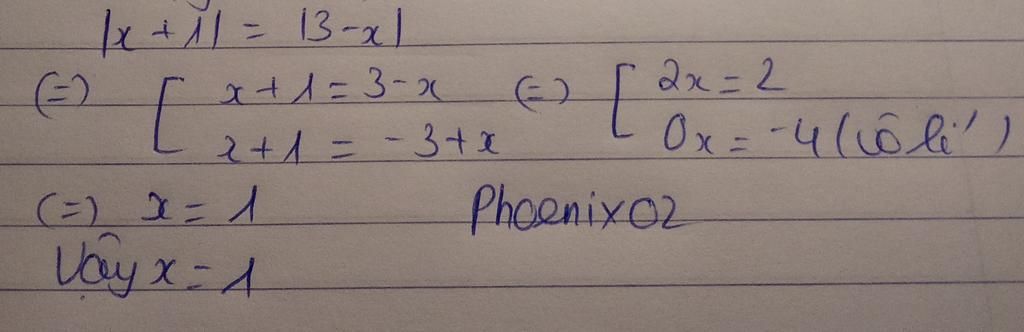 |x + 1| = |3 - x|
(=) [ x + 1 = 3 - x (=) [ 2x = 2
x + 1 = - 3 + x 0x = -4 (vô lí)
(=) x = 1 Phoenix02
Vậy x = 1